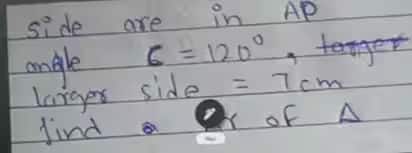 side are in AP
angle C = 120°,
larger side = 7cm
find of Δ